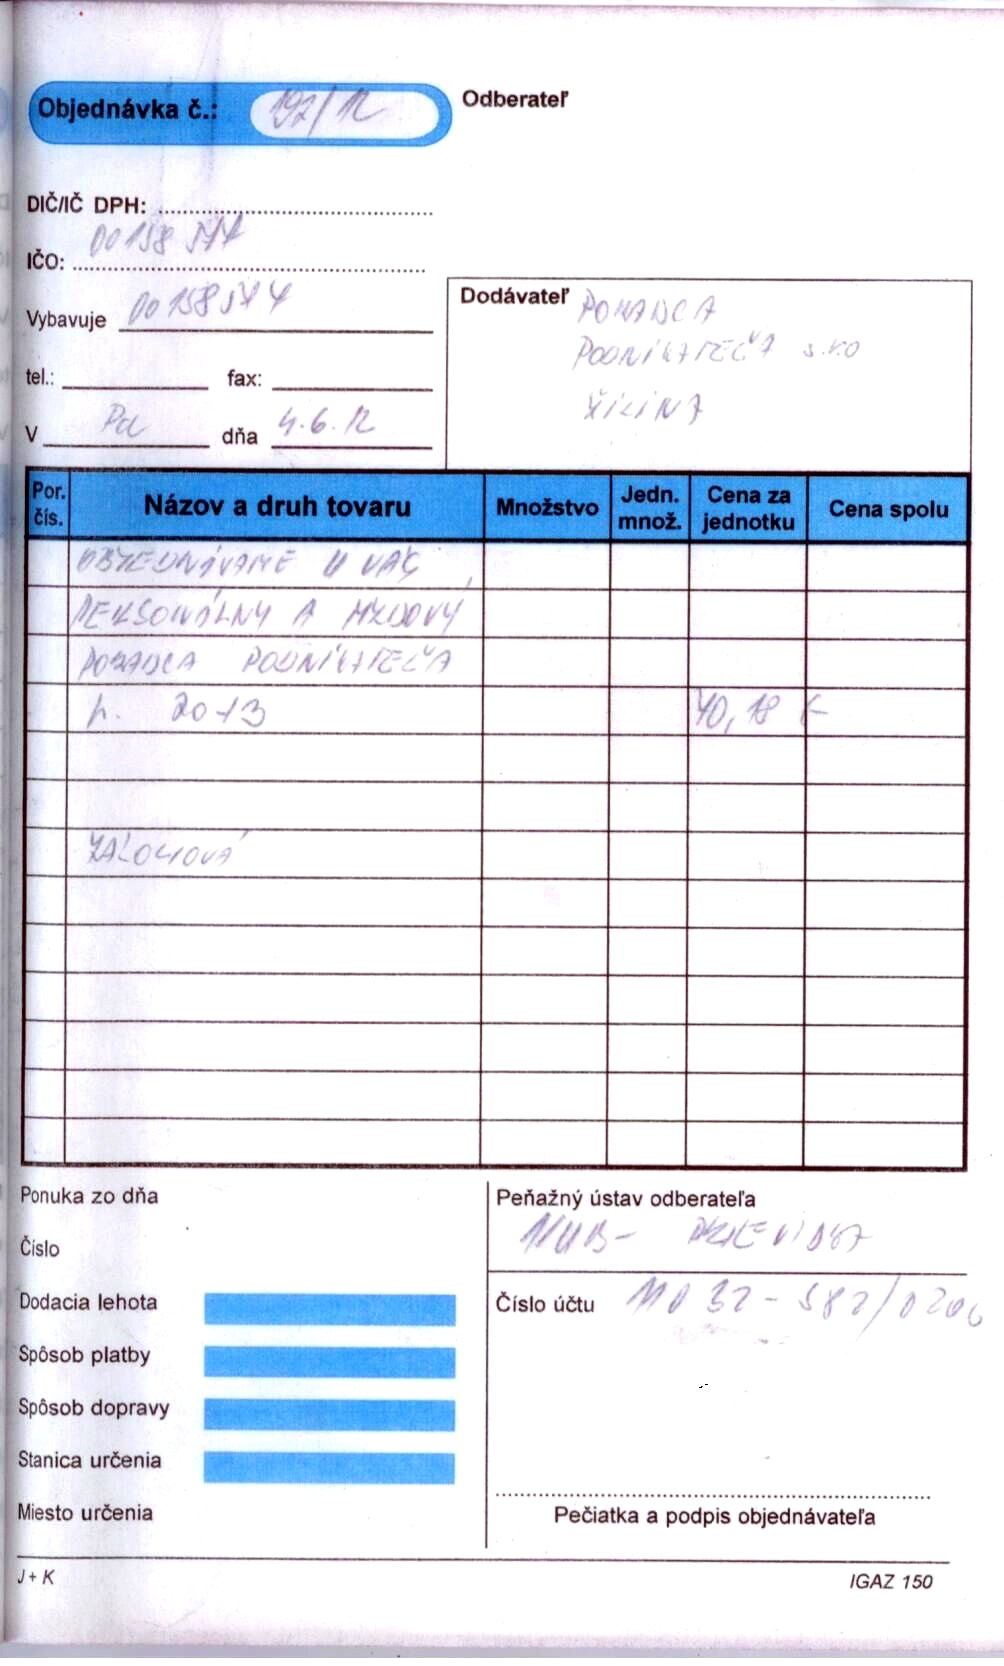 Objednávka č.: 192/12
Odberateľ
DIČ/IČ DPH:
IČO: 00158
Vybavuje 00158
tel.: fax:
V Pd dňa 4.6.12
Dodávateľ PORADCA
PODNIKATEĽA s.r.o
ŽILINA
Por. čís. Názov a druh tovaru Množstvo Jedn. množ. Cena za jednotku Cena spolu
OBJEDNÁVAME U VÁS
PERSONÁLNY A MZDOVÝ
PORADCA PODNIKATEĽA
r. 2013 40,18 €
Ponuka zo dňa
Číslo
Dodacia lehota
Spôsob platby
Spôsob dopravy
Stanica určenia
Miesto určenia
Peňažný ústav odberateľa
PRIEVIDZA
Číslo účtu 11032-382/0200
Pečiatka a podpis objednávateľa
J + K
IGAZ 150